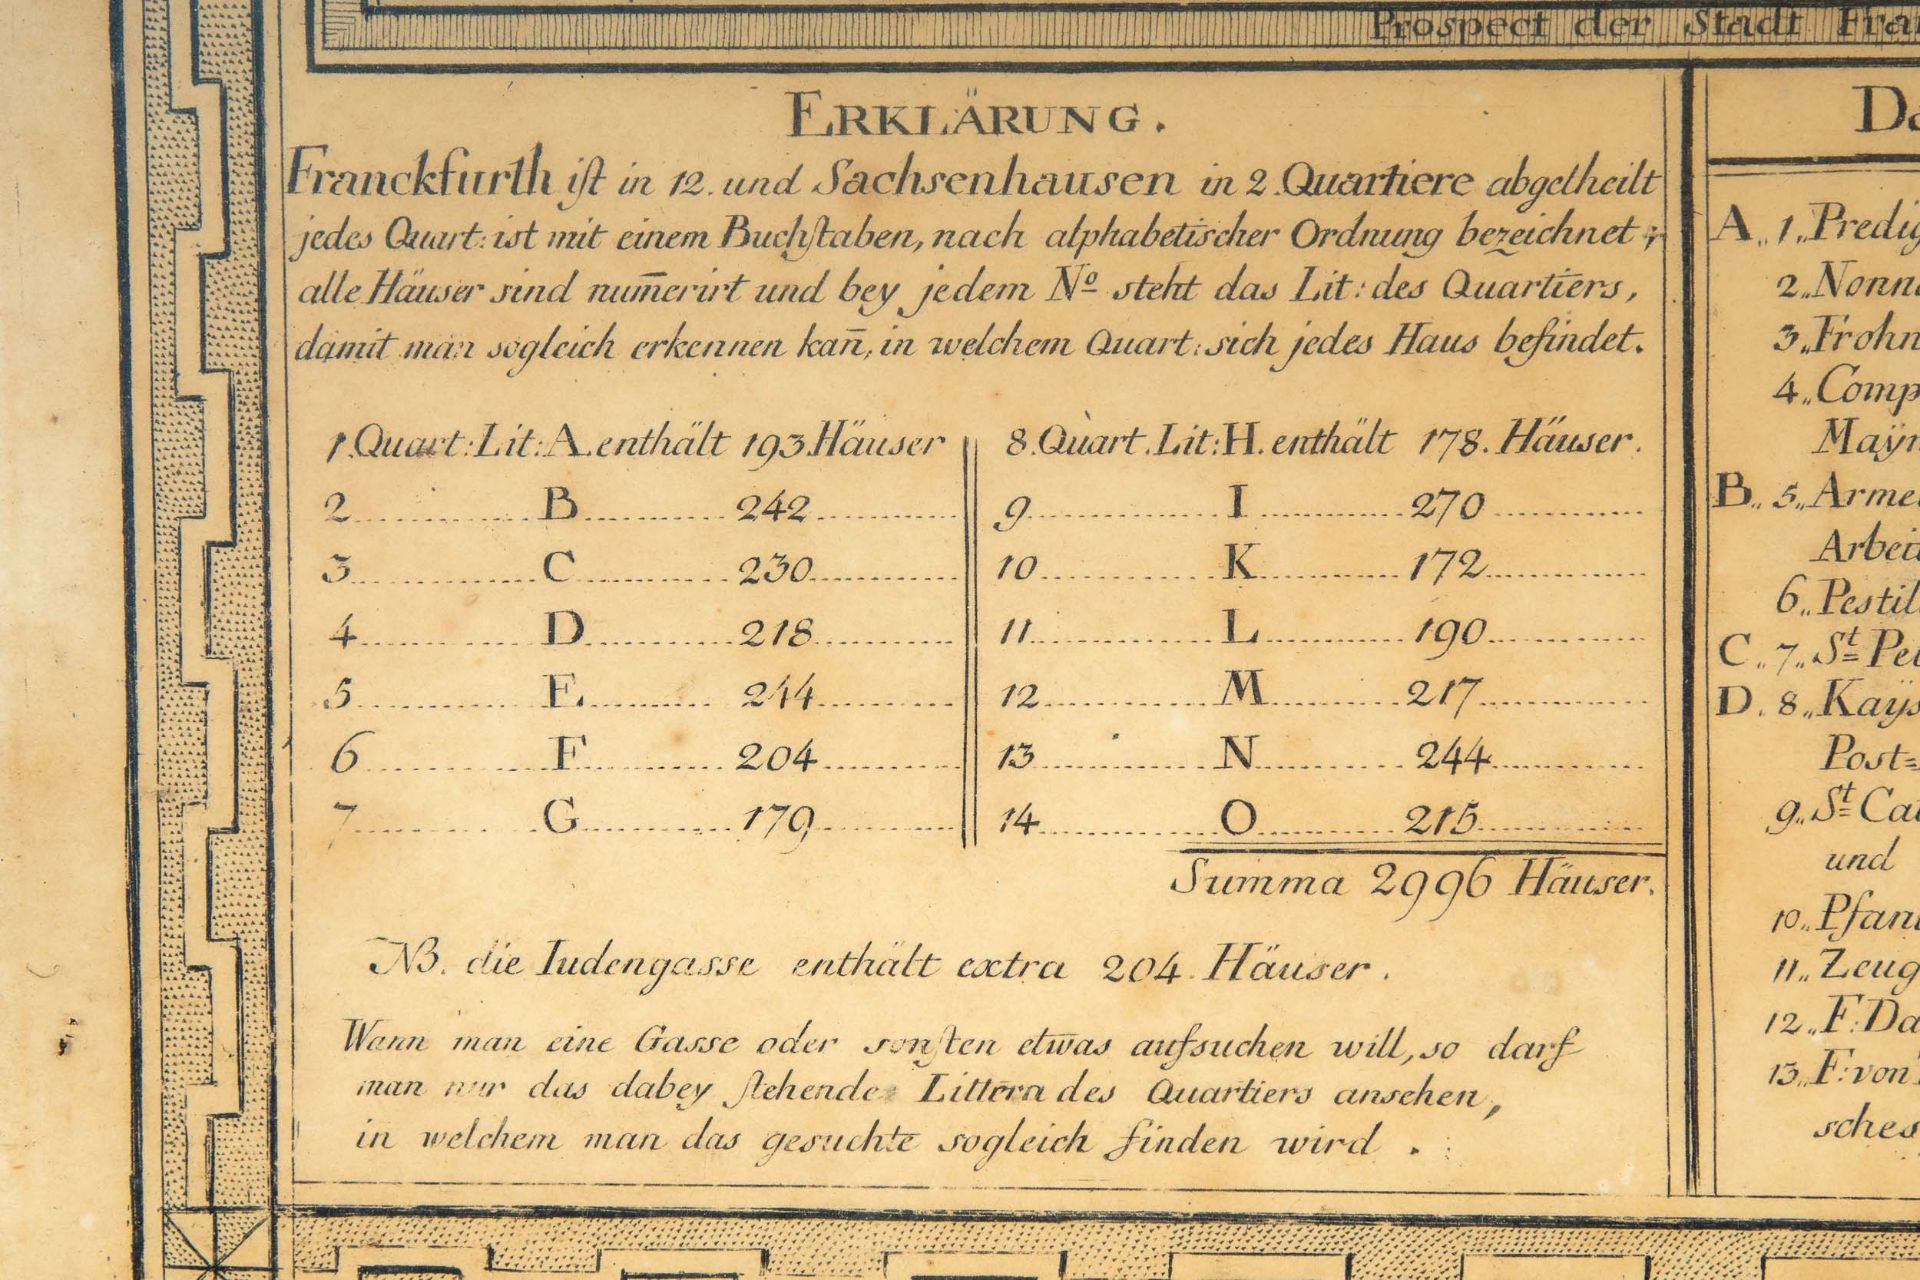 Prospect der Stadt
ERKLÄRUNG.
Franckfurth ist in 12. und Sachsenhausen in 2. Quartiere abgetheilt
jedes Quart: ist mit einem Buchstaben, nach alphabetischer Ordnung bezeichnet;
alle Häuser sind num̅erirt und bey jedem No steht das Lit: des Quartiers,
damit man sogleich erkennen kan̅, in welchem Quart: sich jedes Haus befindet.
1. Quart: Lit: A. enthält 193. Häuser
2 B 242
3 C 230
4 D 218
5 E 244
6 F 204
7 G 179
8. Quart. Lit: H. enthält 178. Häuser.
9 I 270
10 K 172
11 L 190
12 M 217
13 N 244
14 O 215
Summa 2996 Häuser.
NB. die Iudengasse enthält extra 204. Häuser.
Wann man eine Gasse oder sonsten etwas aufsuchen will, so darf
man nur das dabey stehende Littera des Quartiers ansehen,
in welchem man das gesuchte sogleich finden wird.
A,, 1,,
2,,
3,,
4,,
B,, 5,,
6,,
C,, 7,, St
D. 8,,
Post=
9,, St
und
10,,
11,,
12,, F:
13,, F: von